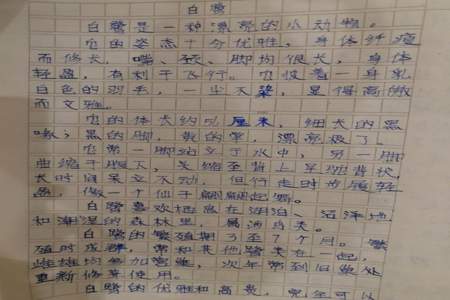 白鹭
白鹭是一种漂亮的小动物。
它的姿态十分优雅，身体纤瘦
而修长，嘴、颈、脚均很长，身体
轻盈，有利于飞行。它披着一身乳
白色的羽毛，一尘不染，显得高傲
而文雅。
它的体长约 厘米，细长的黑
嘴；黑的脚，黄的掌，漂亮极了。
它常一脚站立于水中，另一脚
曲缩于腹下，头缩至背上呈驼背状，
长时间呆立不动，但行走时步履轻
盈，像一个仙子翩翩起舞。
白鹭喜欢栖息在湖泊、沼泽地
和潮湿的森林里，属涉鸟类。
白鹭的繁殖期3至7个月。繁
殖时成群，常和其他鹭类在一起，
雌雄均参加营巢，次年常到旧巢处
重新修葺使用。
白鹭的优雅和高贵，完全可以